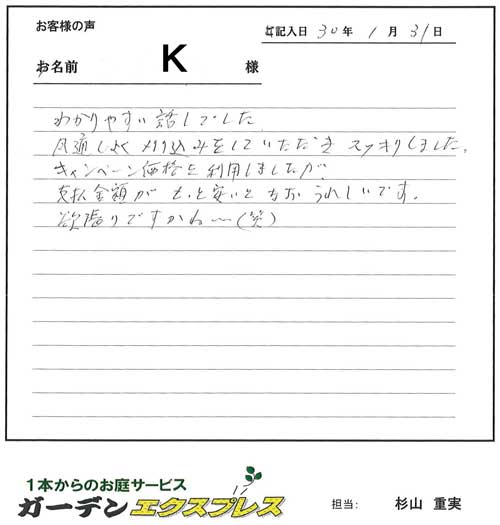 お客様の声
ご記入日 30年 1月 31日
お名前 K 様
わかりやすい話しでした
風通しよく刈り込みをしていただき スッキリしました。
キャンペーン価格を利用しましたが、
支払金額が もっと安いと なお うれしいです。
欲張りですかね〜(笑)
1本からのお庭サービス
ガーデンエクスプレス
担当: 杉山 重実